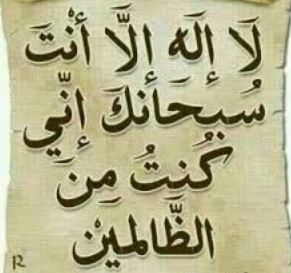 لَا إِلَهَ إِلَّا أَنْتَ
سُبحَانكَ إِنِّي
كُنتُ مِنَ
الظَّالمِيْن
R